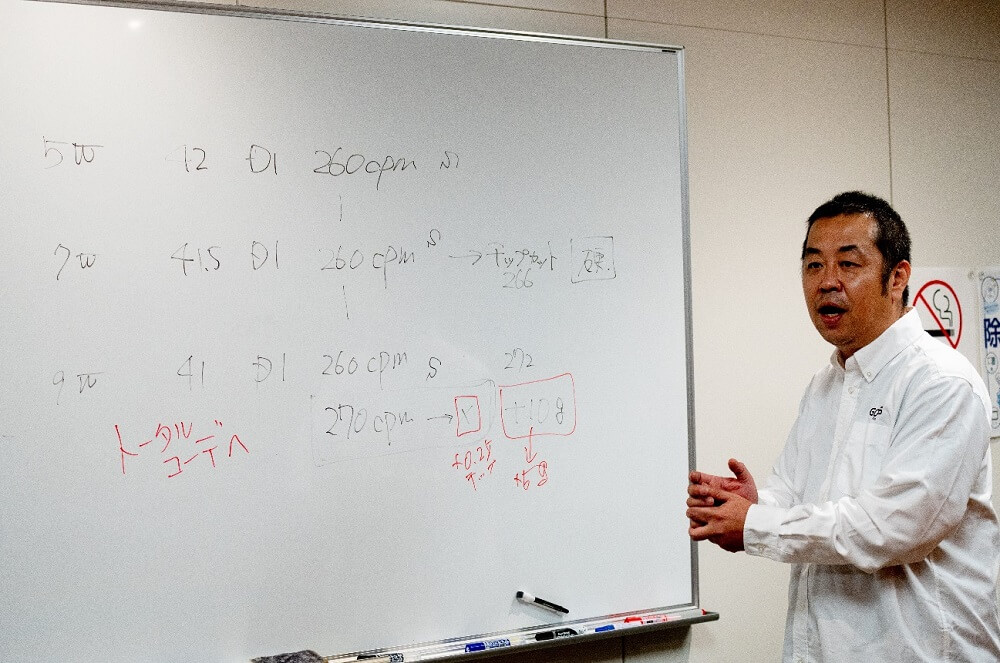 5W 42 D1 260cpm S
7W 41.5 D1 260cpm S → チップカット 硬
266
9W 41 D1 260cpm S 272
270cpm → X +10g
トータル
コーデへ
+0.25
+5g
除